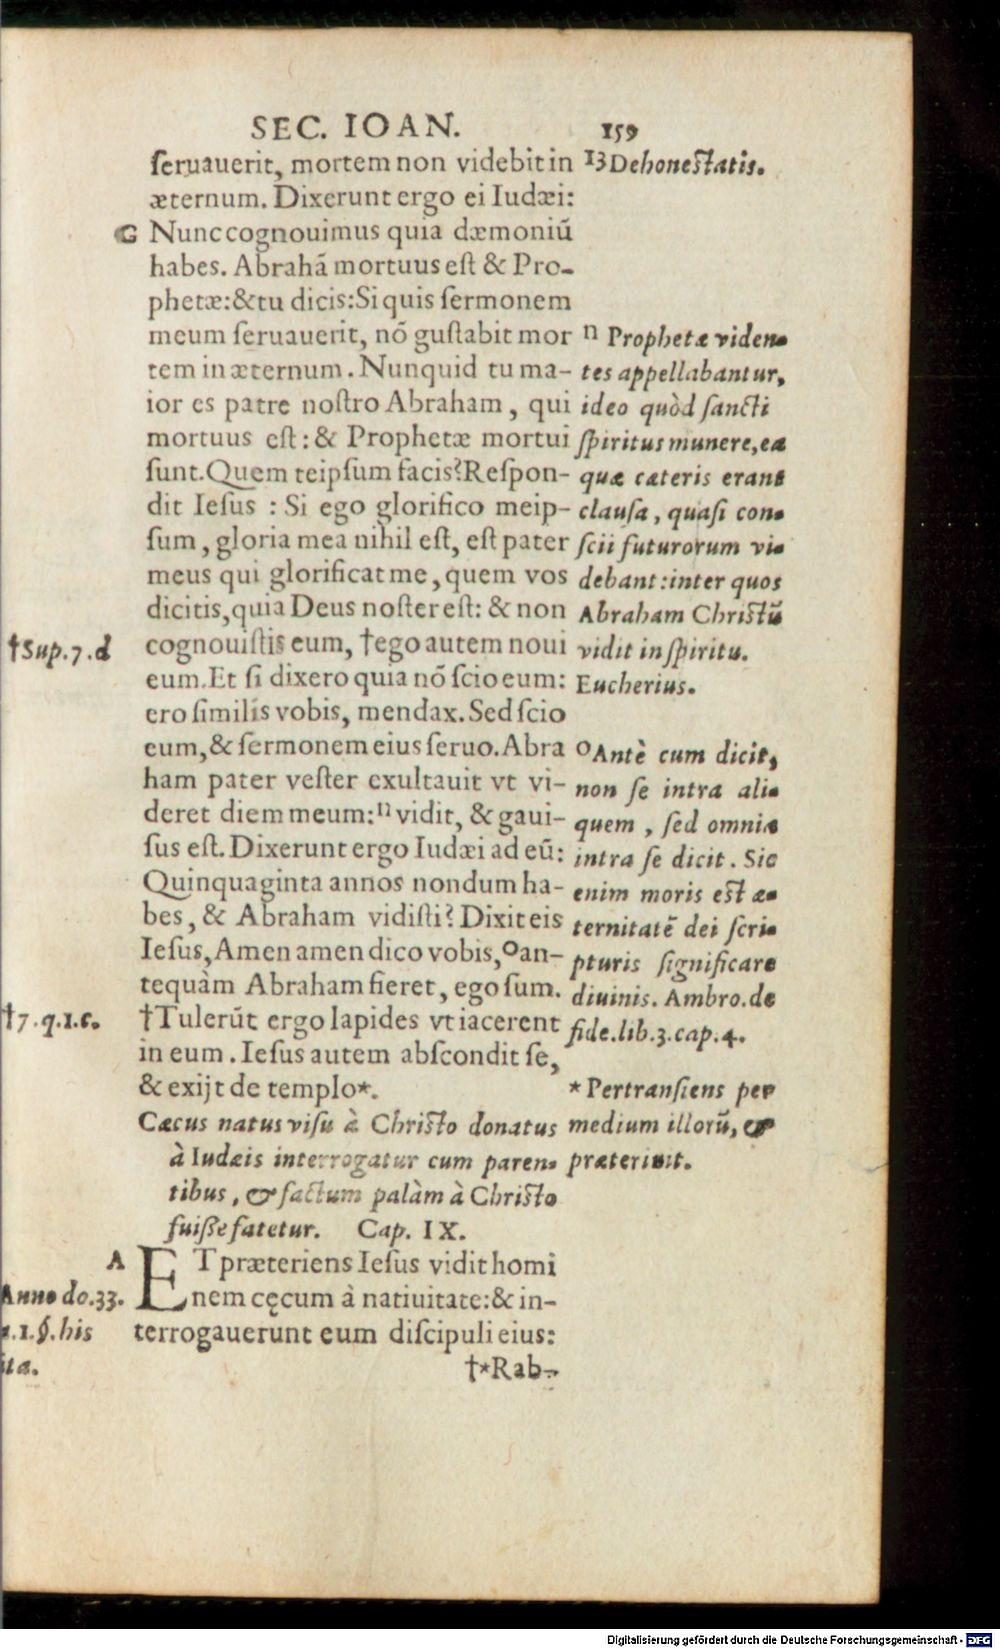 SEC. IOAN. 159
ſeruauerit, mortem non videbit in
æternum. Dixerunt ergo ei Iudæi:
G Nunc cognouimus quia dæmoniũ
habes. Abrahã mortuus eſt & Pro-
phetæ: & tu dicis: Si quis ſermonem
meum ſeruauerit, nõ guſtabit mor
tem in æternum. Nunquid tu ma-
ior es patre noſtro Abraham, qui
mortuus eſt: & Prophetæ mortui
ſunt. Quem teipſum facis? Reſpon-
dit Ieſus : Si ego glorifico meip-
ſum, gloria mea nihil eſt, eſt pater
meus qui glorificat me, quem vos
dicitis, quia Deus noſter eſt: & non
cognouiſtis eum, †ego autem noui
eum. Et ſi dixero quia nõ ſcio eum:
ero ſimilis vobis, mendax. Sed ſcio
eum, & ſermonem eius ſeruo. Abra
ham pater veſter exultauit vt vi-
deret diem meum: n vidit, & gaui-
ſus eſt. Dixerunt ergo Iudæi ad eũ:
Quinquaginta annos nondum ha-
bes, & Abraham vidiſti? Dixit eis
Ieſus, Amen amen dico vobis, o an-
tequàm Abraham fieret, ego ſum.
†Tulerũt ergo lapides vt iacerent
in eum. Ieſus autem abſcondit ſe,
& exijt de templo*.
Cæcus natus viſu à Chriſto donatus
à Iudæis interrogatur cum paren-
tibus, & factum palàm à Chriſto
fuiſſe fatetur. Cap. IX.
A
ET præteriens Ieſus vidit homi
nem cęcum à natiuitate: & in-
terrogauerunt eum diſcipuli eius:
†*Rab-
13 Dehoneſtatis.
n Prophetæ viden-
tes appellabantur,
ideo quòd ſancti
ſpiritus munere, ea
quæ cæteris erant
clauſa, quaſi con-
ſcii futurorum vi-
debant: inter quos
Abraham Chriſtũ
vidit in ſpiritu.
Eucherius.
o Antè cum dicit,
non ſe intra ali-
quem, ſed omnia
intra ſe dicit. Sic
enim moris eſt æ-
ternitatẽ dei ſcri-
pturis ſignificare
diuinis. Ambro. de
fide. lib. 3. cap. 4.
*Pertranſiens per
medium illorũ, &
præteriuit.
†Sup. 7. d
†7. q. 1. c.
Anno do. 33.
his
Digitalisierung gefördert durch die Deutsche Forschungsgemeinschaft - DFG